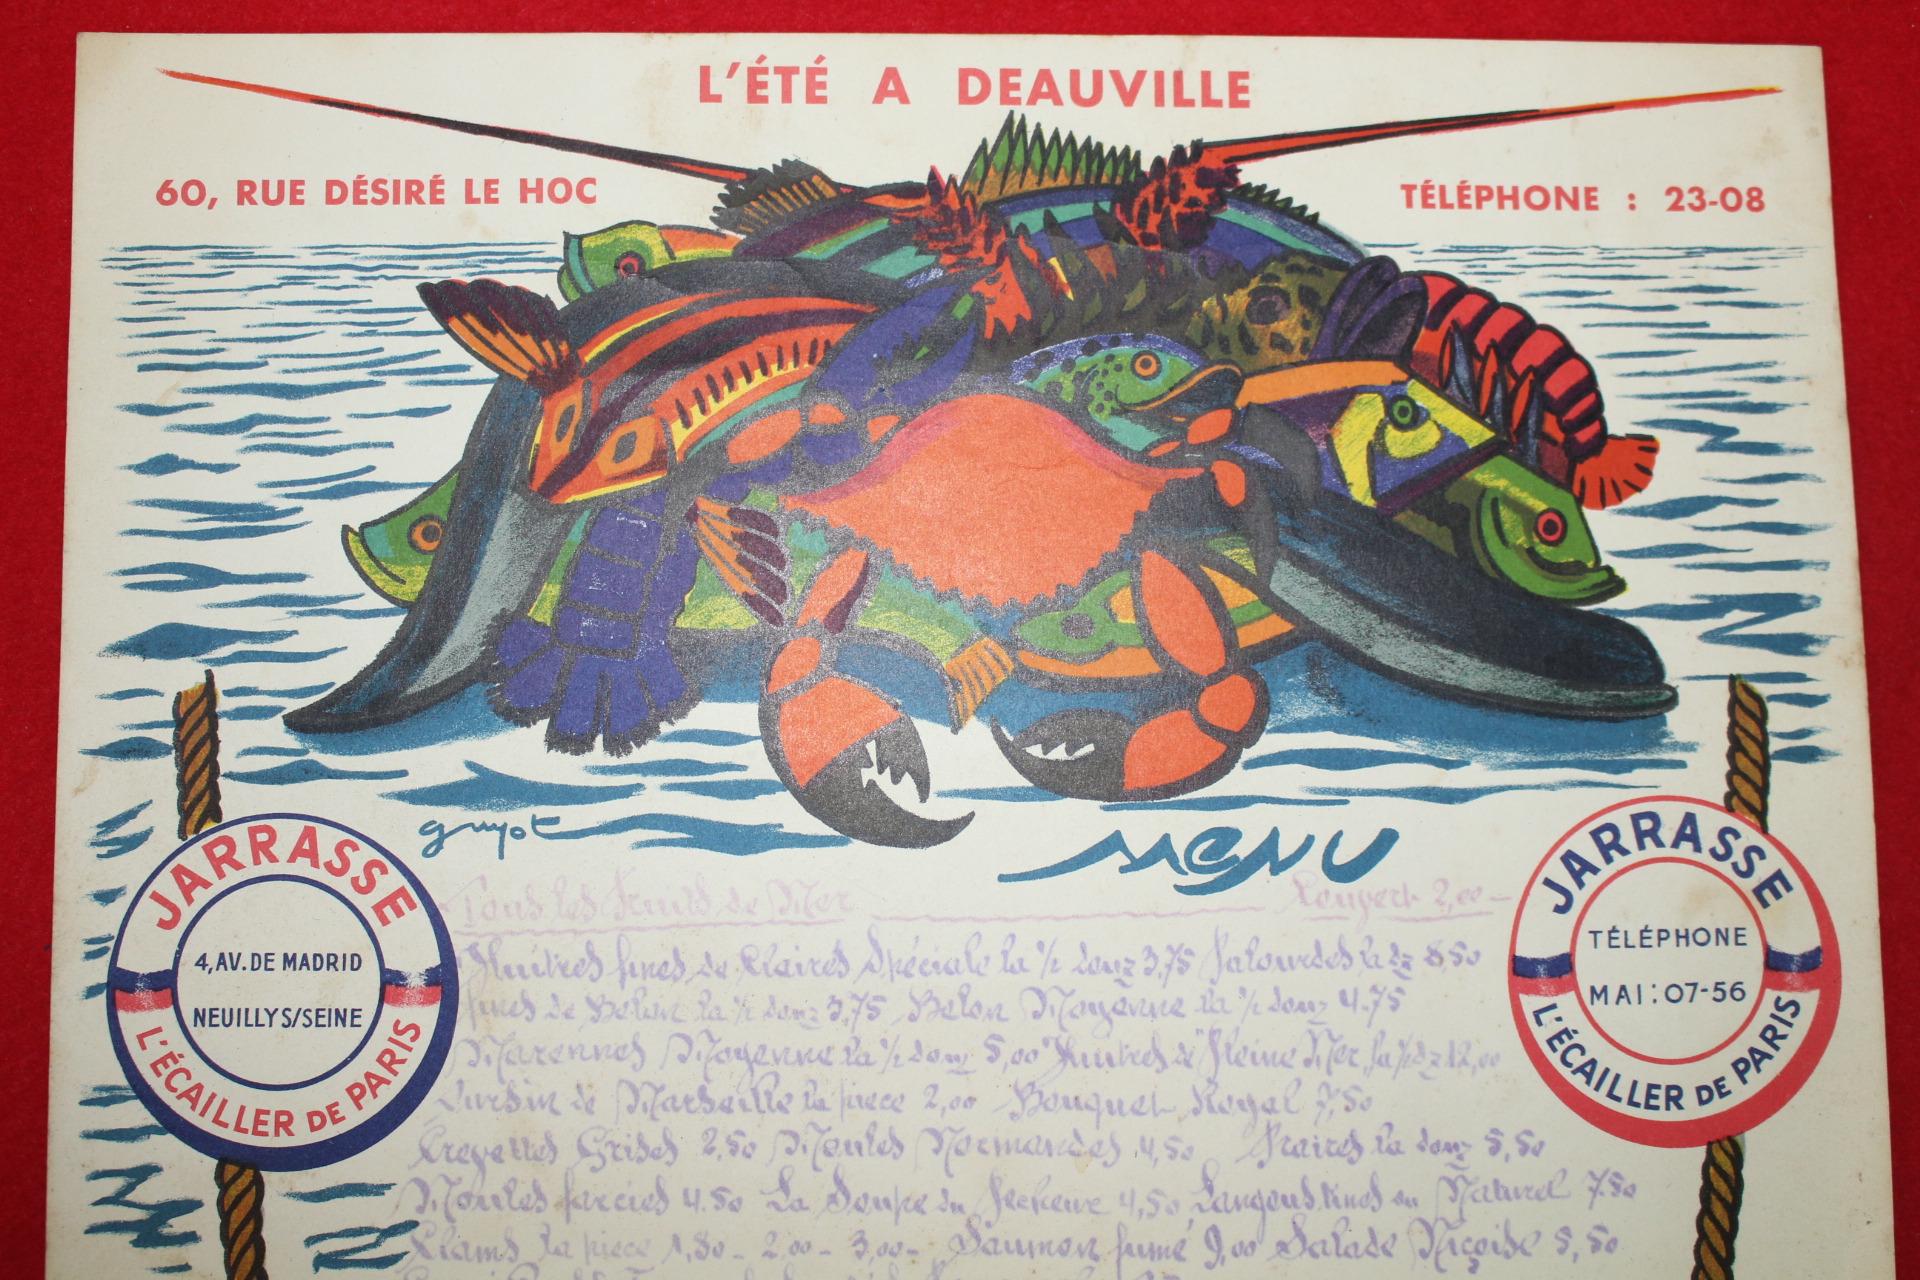 L'ÉTÉ A DEAUVILLE
60, RUE DÉSIRÉ LE HOC
TÉLÉPHONE : 23-08
guyot
MENU
JARRASSE
4, AV. DE MADRID
NEUILLY S/SEINE
L'ÉCAILLER DE PARIS
JARRASSE
TÉLÉPHONE
MAI : 07-56
L'ÉCAILLER DE PARIS
Tous les Fruits de Mer Couvert 2,00
Huitres fines de Claires Spéciale la ½ douz 3,75 Palourdes la dz 8,50
fines de Belon la ½ douz 3,75 Belon Moyenne la ½ douz 4.75
Marennes Moyenne la ½ douz 5,00 Huitres de Pleine Mer la ½ dz 12,00
Oursin de Marseille la piece 2,00 Bouquet Royal 7,50
Crevettes Grises 2,50 Moules Normandes 4,50 Praires la douz 5,50
Moules farcies 4.50 La Soupe du Pecheur 4,50 Langoustines au Naturel 7.50
Clams la piece 1,80 - 2,00 - 3,00 - Saumon fumé 9,00 Salade Niçoise 5,50